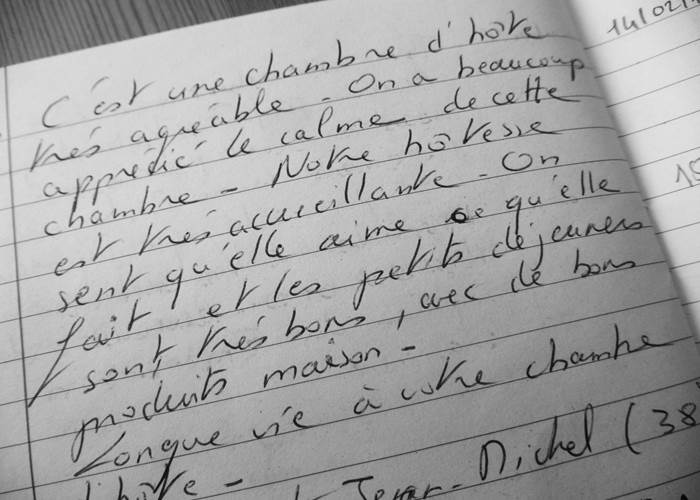 C'est une chambre d'hôte
très agréable - On a beaucoup
apprécié le calme de cette
chambre - Notre hôtesse
est très accueillante - On
sent qu'elle aime ce qu'elle
fait, et les petits déjeuners
sont très bons, avec de bons
produits maison -
Longue vie à votre chambre
d'hôte -
Jean-Michel (38
14/02/